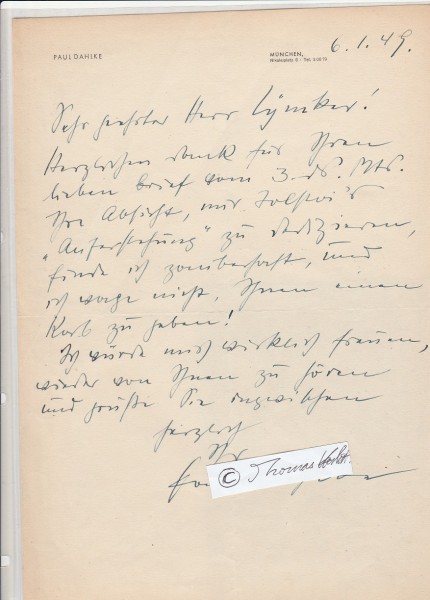 PAUL DAHLKE
MÜNCHEN,
Nikolaiplatz 6 - Tel.
6.1.49.
Sehr geehrter Herr
Herzlichen Dank für Ihren
lieben Brief vom 3. ds. Mts.
Ihre Absicht, mir Tolstoi's
"Auferstehung" zu dedizieren,
finde ich zauberhaft, und
ich wage nicht, Ihnen einen
Korb zu geben!
Ich würde mich wirklich freuen,
wieder von Ihnen zu hören
und grüße Sie inzwischen
herzlich
Ihr
© Thomas